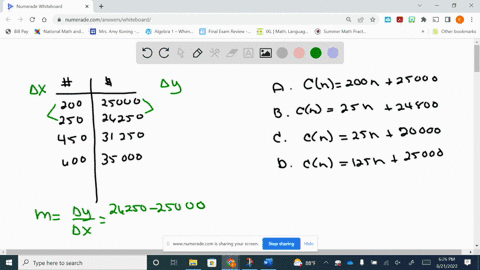 Numerade Whiteboard
numerade.com/answers/whiteboard/
Bill Pay
National Math and
Mrs. Amy Koning -
Algebra 1 - When
Final Exam Review -
IXL | Math, Languag
Summer Math Pract
Other bookmarks
Δx # $ Δy
200 25000
250 26250
450 31250
600 35000
m = Δy/Δx = 26250-25000
A. C(n) = 200n + 25000
B. C(n) = 25n + 24800
C. C(n) = 25n + 20000
D. C(n) = 125n + 25000
www.numerade.com is sharing your screen.
Stop sharing
Hide
Type here to search
88°F
6:26 PM
5/21/2023